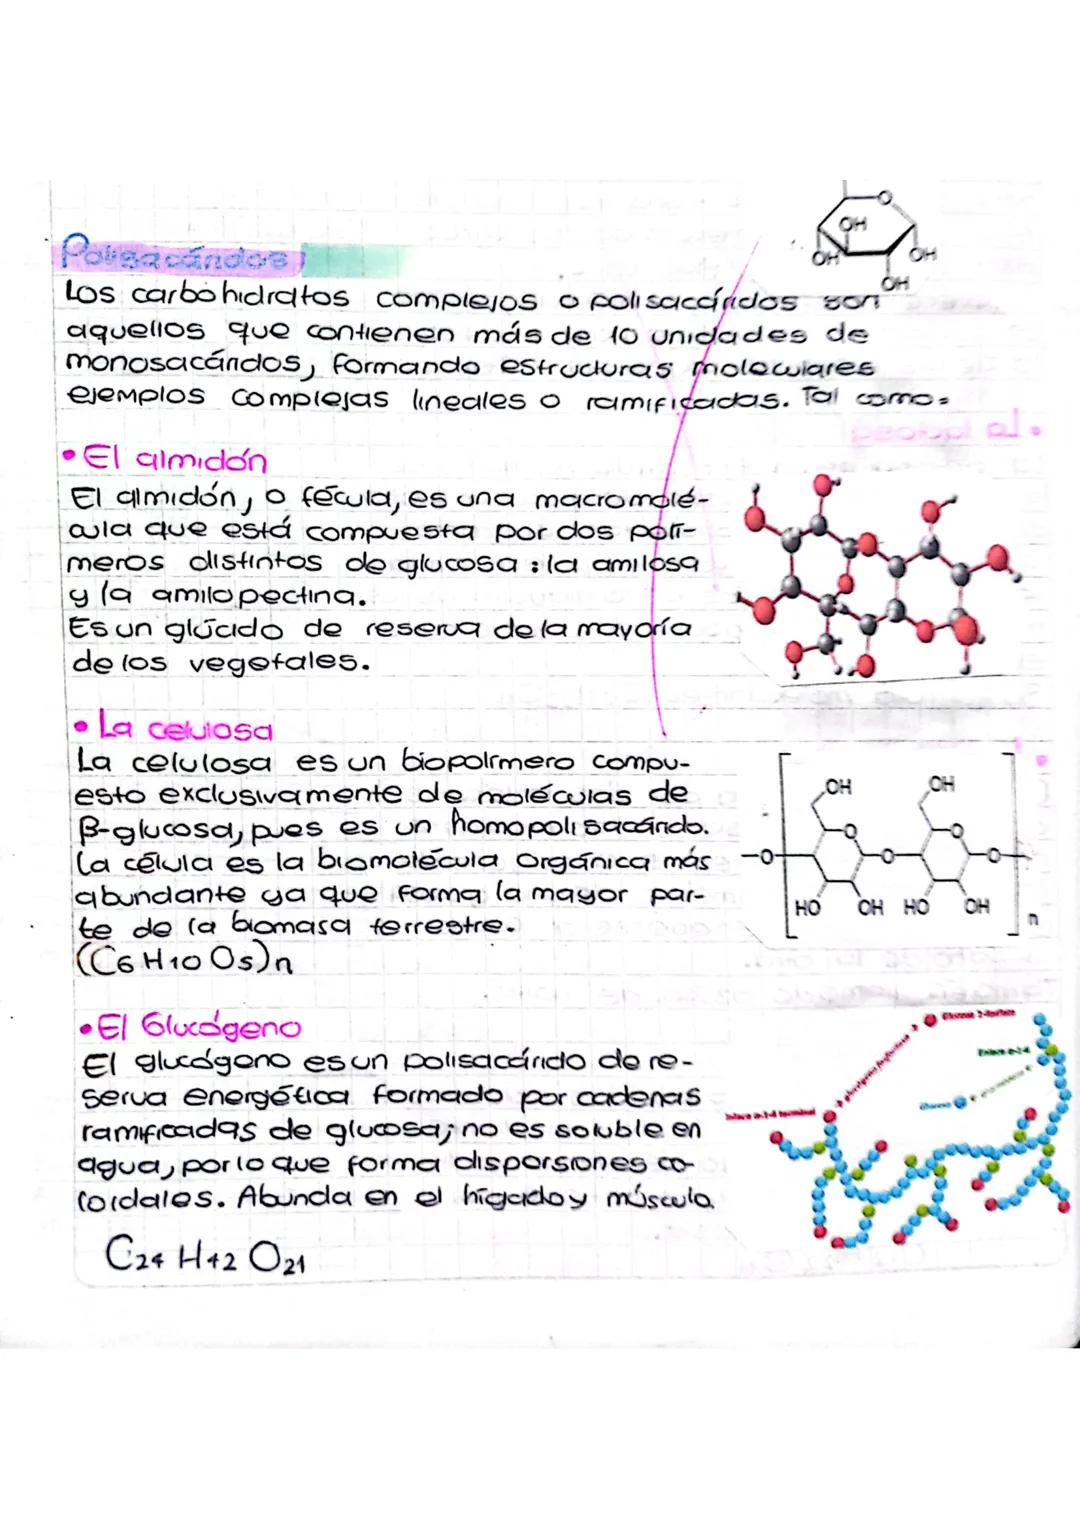 OH
OH
OH
OH
Polisacáridos
Los carbohidratos complejos o polisacáridos son
aquellos que contienen más de 10 unidades de
monosacáridos, formando estructuras moleculares
ejemplos complejas lineales o ramificadas. Tal como:
• El almidón
El almidón, o fécula, es una macromolé-
cula que está compuesta por dos polí-
meros distintos de glucosa: la amilosa
y la amilopectina.
Es un glúcido de reserva de la mayoría
de los vegetales.
• La celulosa
La celulosa es un biopolímero compu-
esto exclusivamente de moléculas de
β-glucosa, pues es un homopolisacárido.
La célula es la biomolécula orgánica más
abundante ya que forma la mayor par-
te de la biomasa terrestre.
(C6 H10 O5)n
OH OH
O O
O O O
HO OH HO OH
n
• El Glucógeno
El glucógeno es un polisacárido de re-
serva energética formado por cadenas
ramificadas de glucosa; no es soluble en
agua, por lo que forma dispersiones co-
loidales. Abunda en el hígado y músculo.
C24 H42 O21
Enlace α-1-4 terminal